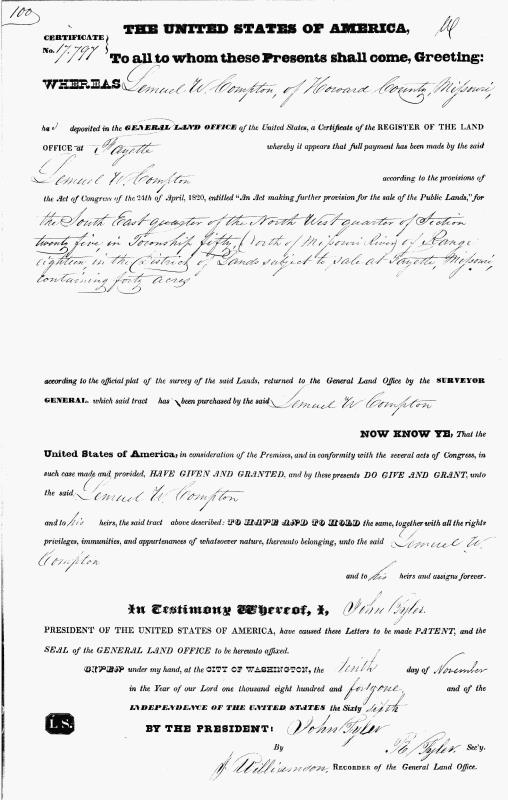 100
THE UNITED STATES OF AMERICA,
CERTIFICATE
No. 17.797
To all to whom these Presents shall come, Greeting:
WHEREAS Lemuel W. Compton, of Howard County, Missouri,
has deposited in the GENERAL LAND OFFICE of the United States, a Certificate of the REGISTER OF THE LAND
OFFICE at Fayette whereby it appears that full payment has been made by the said
Lemuel W. Compton according to the provisions of
the Act of Congress of the 24th of April, 1820, entitled "An Act making further provision for the sale of the Public Lands," for
the South East quarter of the North West quarter of Section
twenty five in Township fifty, North of Missouri river, of Range
eighteen, in the District of Lands subject to sale at Fayette, Missouri,
containing forty acres
according to the official plat of the survey of the said Lands, returned to the General Land Office by the SURVEYOR
GENERAL. which said tract has been purchased by the said Lemuel W. Compton
NOW KNOW YE, That the
United States of America, in consideration of the Premises, and in conformity with the several acts of Congress, in
such case made and provided, HAVE GIVEN AND GRANTED, and by these presents DO GIVE AND GRANT, unto
the said Lemuel W. Compton
and to his heirs, the said tract above described: TO HAVE AND TO HOLD the same, together with all the rights
privileges, immunities, and appurtenances of whatsoever nature, thereunto belonging, unto the said Lemuel W.
Compton
and to his heirs and assigns forever.
In Testimony Whereof, I, John Tyler
PRESIDENT OF THE UNITED STATES OF AMERICA, have caused these Letters to be made PATENT, and the
SEAL of the GENERAL LAND OFFICE to be hereunto affixed.
GIVEN under my hand, at the CITY OF WASHINGTON, the tenth day of November
in the Year of our Lord one thousand eight hundred and forty one and of the
INDEPENDENCE OF THE UNITED STATES the Sixty sixth
L.S.
BY THE PRESIDENT: John Tyler
By R. Tyler Sec'y.
J. Williamson, RECORDER of the General Land Office.